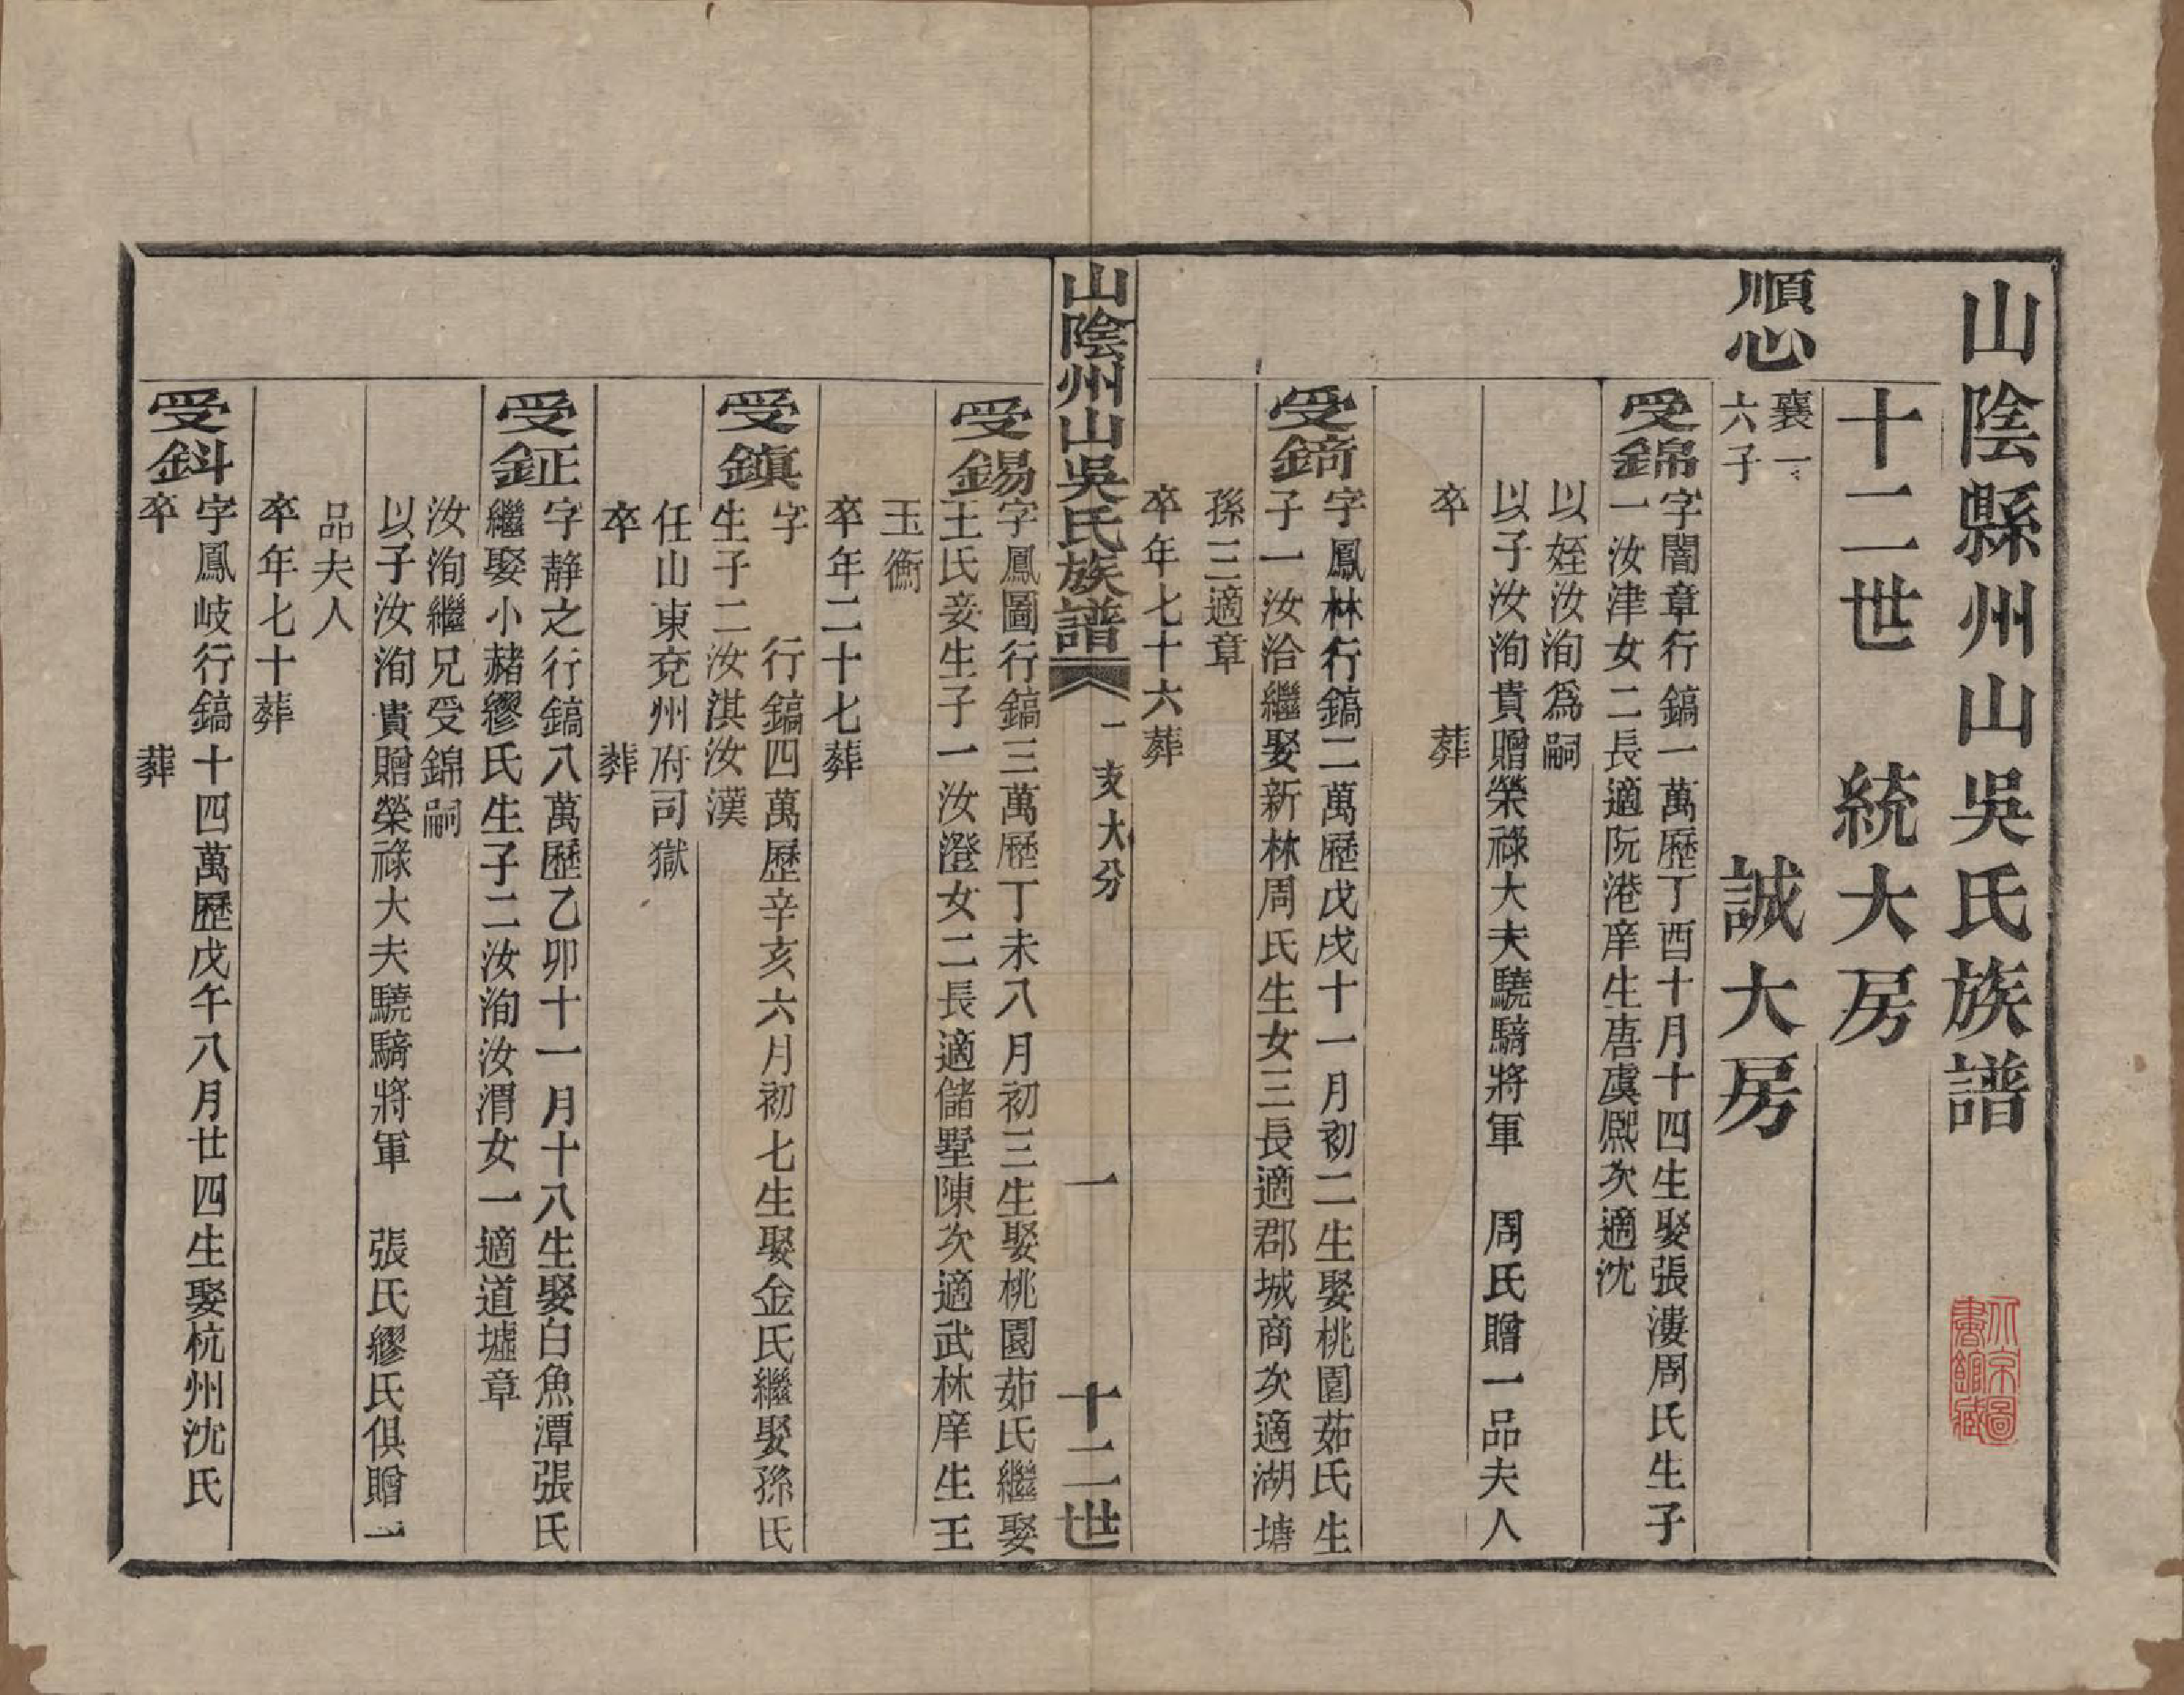 山陰縣州山吳氏族譜
十二世　統大房
順心　襄一　六子　誠大房
受錦
字闇章行鎬一萬歷丁酉十月十四生娶張漊周氏生子
一汝津女二長適阮港庠生唐虞熈次適沈
以姪汝洵爲嗣
以子汝洵貴贈榮祿大夫驍騎將軍　周氏贈一品夫人
卒　葬
受錡
字鳳林行鎬二萬歷戊戌十一月初二生娶桃園茹氏生
子一汝洽繼娶新林周氏生女三長適郡城商次適湖塘
孫三適章
卒年七十六葬
山陰州山吳氏族譜　一支大分　一　十二世
受錫
字鳳圖行鎬三萬歷丁未八月初三生娶桃園茹氏繼娶
王氏妾生子一汝澄女二長適儲墅陳次適武林庠生王
玉衡
卒年二十七葬
受鎮
字　行鎬四萬歷辛亥六月初七生娶金氏繼娶孫氏
生子二汝淇汝漢
任山東兗州府司獄
卒　葬
受鉦
字靜之行鎬八萬歷乙卯十一月十八生娶白魚潭張氏
繼娶小赭繆氏生子二汝洵汝渭女一適道墟章
汝洵繼兄受錦嗣
以子汝洵貴贈榮祿大夫驍騎將軍　張氏繆氏俱贈一
品夫人
卒年七十葬
受鈄
字鳳岐行鎬十四萬歷戊午八月廿四生娶杭州沈氏
卒　葬